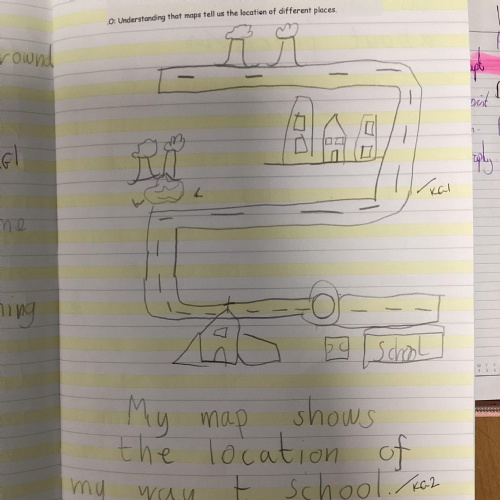 O: Understanding that maps tell us the location of different places.
KG-1
School
My map shows
the location of
my way t school. KG-2
round
me
ning